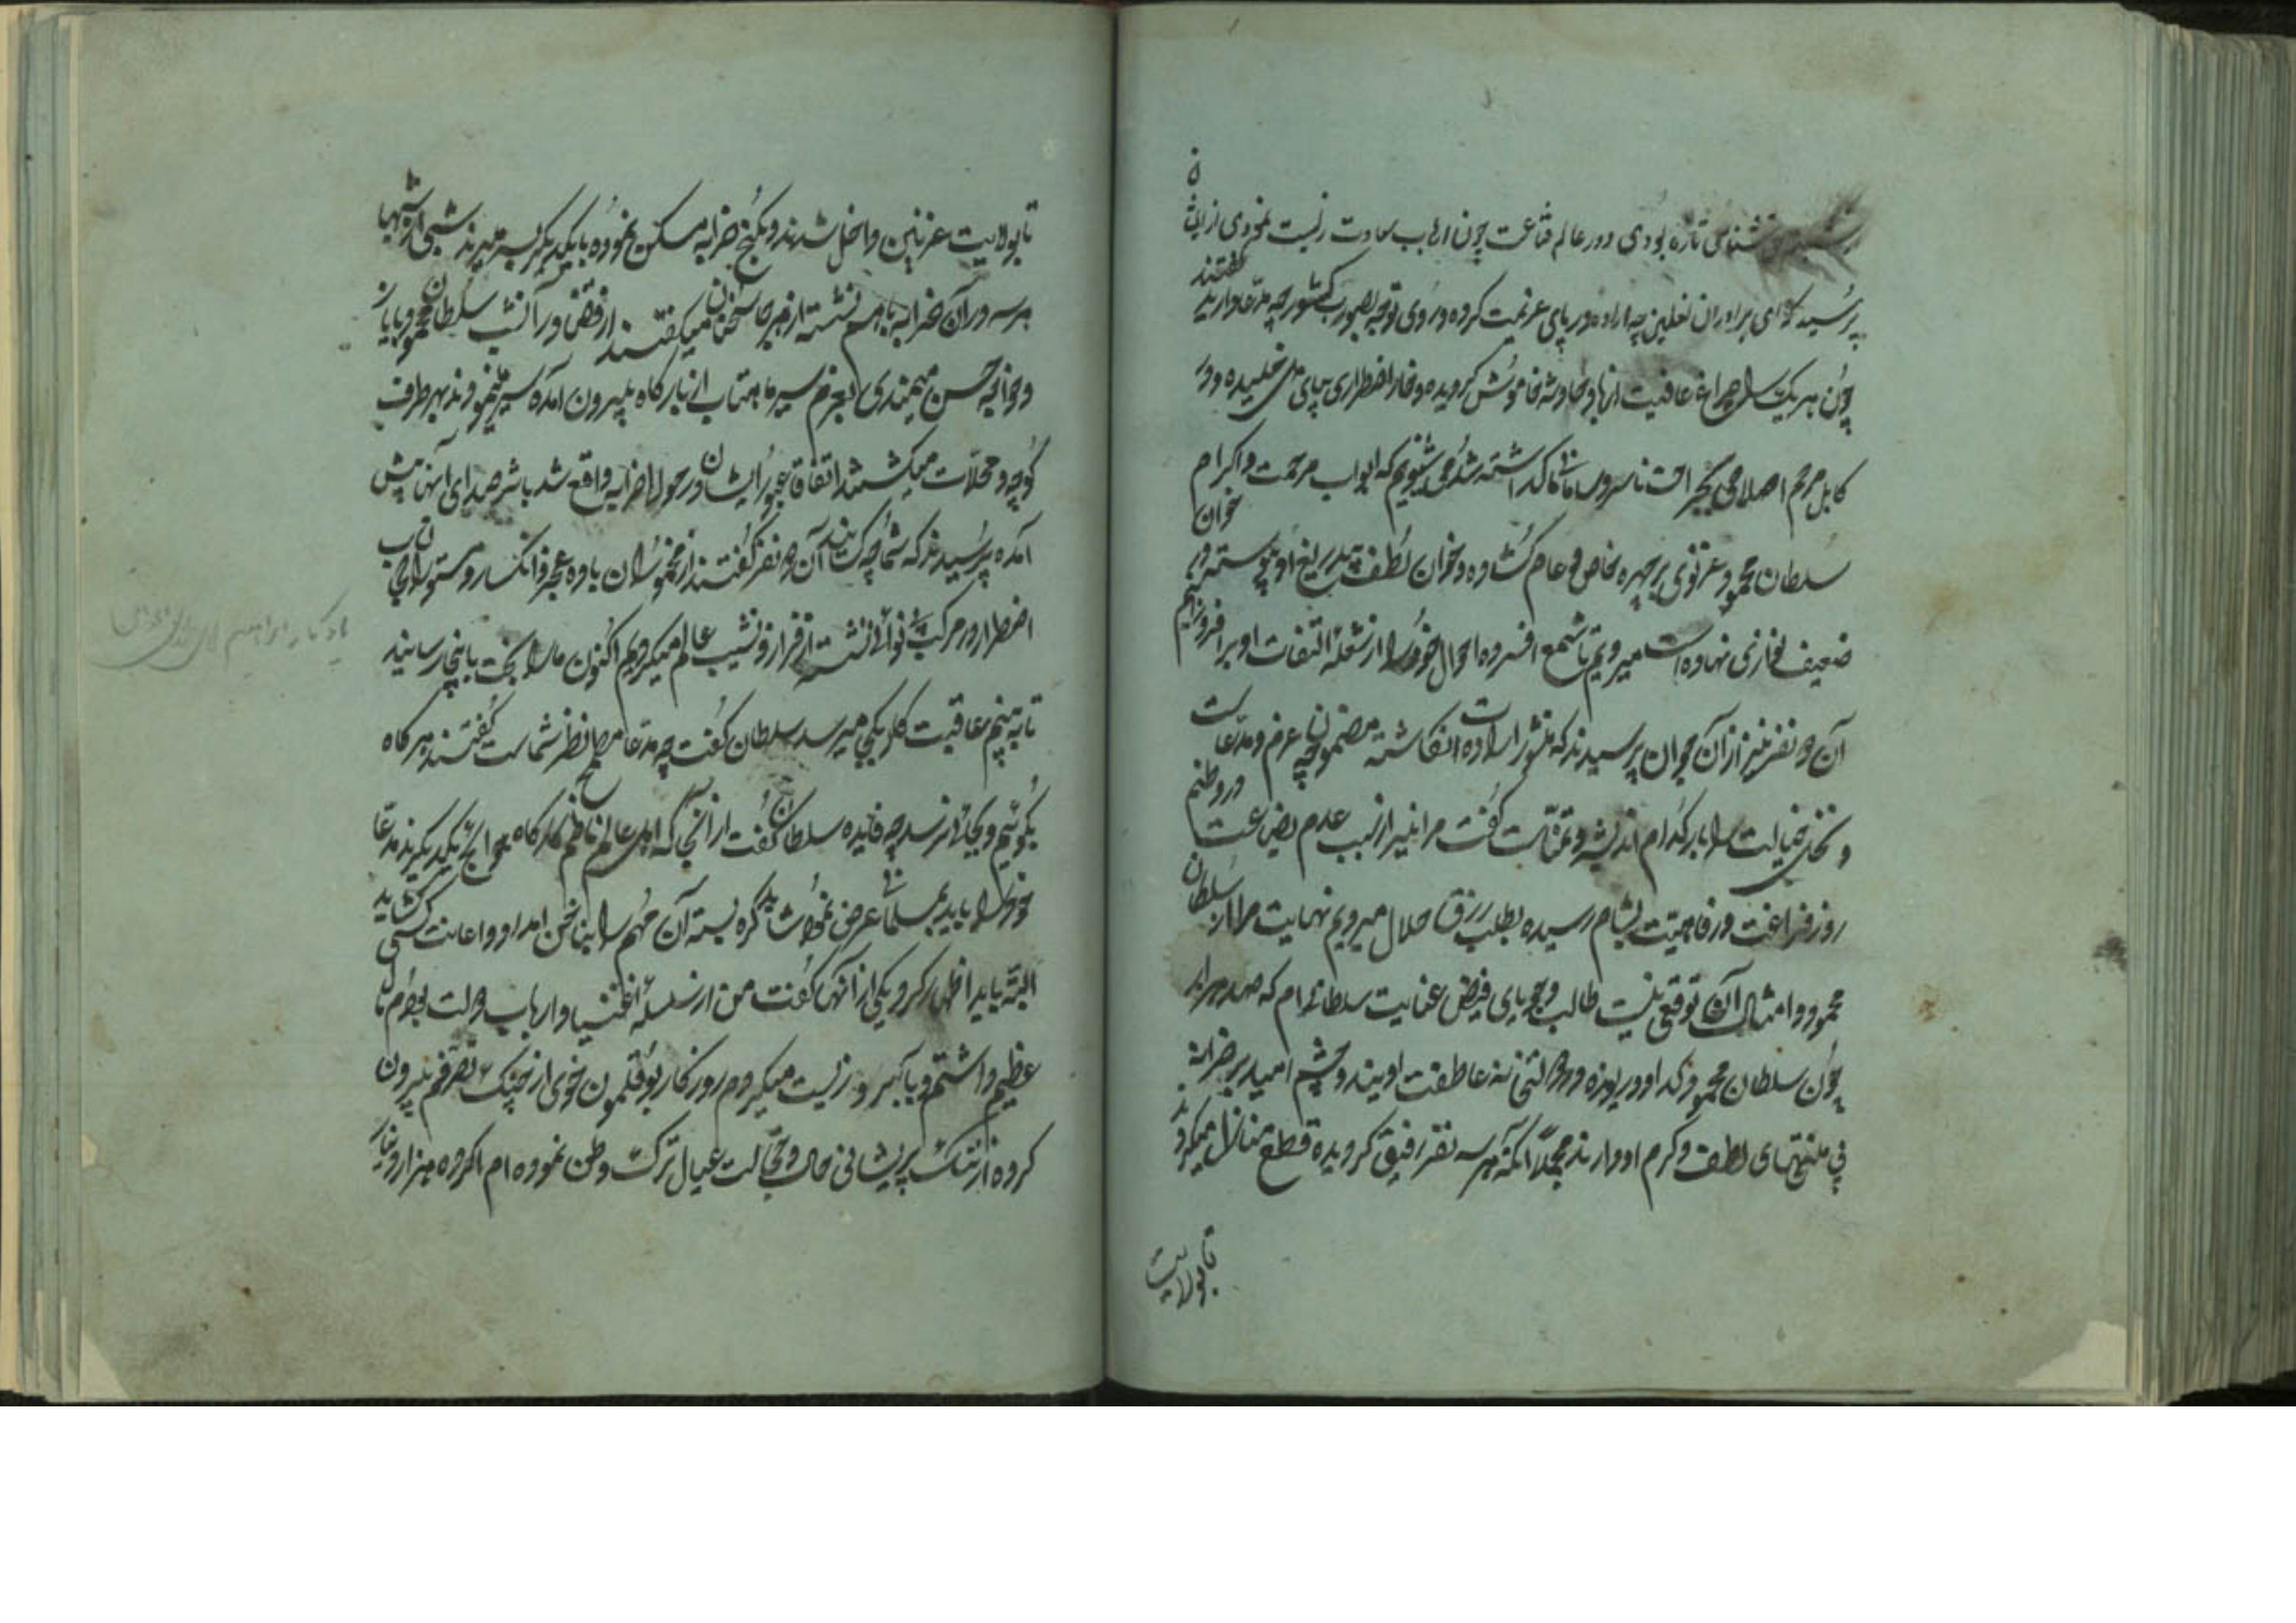 شناس تازه بودی و در عالم قناعت چون ارباب سعادت زیست نمودی از ایشان
پرسید که ای برادران نعلین چه اراده در پای عزیمت کرده و روی توجه بصوب کشور چه مدعا دارید گفتند
چون هر یک را چراغ عافیت از باد حادثه خاموش گردیده و خار اضطراری بپای دل خلیده و در
کابل مرهم اصلاحی بجراحت ناسور ما نگذاشته شد می شنویم که ابواب مرحمت و اکرام
سلطان محمود غزنوی بر چهره خاص و عام گشاده و خوان لطف بیدریغ او پیوسته در
ضعیف نوازی نهاده است میرویم تا شمع افسرده احوال خود را از شعله التفات او برافروزیم
آن دو نفر نیز از آن جوان پرسیدند که منشور ارادت انگاشته مضمون چه عزم و مدعاست
و نخل خیالت را بار کدام اندیشه و تمناست گفت مرا نیز از سبب عدم بضاعت در وطنم
روز فراغت و رفاهیت بشام رسیده بطلب رزق حلال میرویم نهایت مرا از سلطان
محمود و امثال آن توقعی نیست طالب و جویای فیض عنایت سلطانی ام که صد هزار
چون سلطان محمود گدا و دریوزه در دولتخانه عاطفت اویند و چشم امید بر خزانه
بی منتهای لطف و کرم او دارند مجملا آنکه هر سه نفر رفیق گردیده قطع منازل میکردند
تا بولایت
تا بولایت غزنین داخل شدند و بکنج خرابه مسکن نموده با یکدیگر بسر میبردند شبی از شبها
هر سه در آن خرابه با هم نشسته از هر جا سخنان میگفتند از قضا در آنشب سلطان محمود با ایاز
و خواجه حسن میمندی بعزم سیر ماهتاب از بارگاه بیرون آمده سیر مینمودند بهر طرف
کوچه و محلات میگشتند اتفاقا عبور ایشان در حوالی خرابه واقع شد باثر صدای آنها پیش
آمده پرسیدند که شما چه کسانید آن دو نفر گفتند از مخموران باده عجز و انکسار و مستوران
اضطرار و بر مرکب بینوائی نشسته از فراز و نشیب عالم میگردیم اکنون ما را بخت باینجا رسانیده
تا به بینیم عاقبت کار بکجا میرسد سلطان گفت چه مدعا مطمح نظر شماست گفتند هر گاه
بگوئیم و بجائی نرسد چه فایده سلطان گفت از آنجا که اهل عالم ناظم کارگاه حوایج یکدیگرند مدعای
خود را باید بمسلمانی عرض نمود شاید گره بسته آن مهم را بناخن امداد و اعانت کسی گشاید
البته باید اظهار کرد یکی از آنها گفت من از سلسله اغنیا و ارباب دولت بودم مال
عظیم داشتم و بآبرو زیست میکردم روزگار بوقلمون خوی از چنگ تصرفم بیرون
کرده از تنگ پریشانی حال و خجالت عیال ترک وطن نموده ام اگر ده هزار دینار